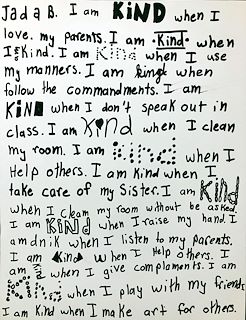 Jada B. I am KiND when I
love my parents. I am Kind when
I Kind. I am Kind when I use
my manners. I am kind when
follow the commandments. I am
KiND when I don't speak out in
class. I am Kind when I clean
my room. I am Kind when I
Help others. I am Kind when I
take care of my Sister. I am Kind
when I clean my room without be asked.
I am KiND when I raise my hand. I
am dnik when I listen to my parents.
I am Kind when I Help others. I
am when I give complaments. I am
Kind when I play with my friends
I am Kind when I make art for others.